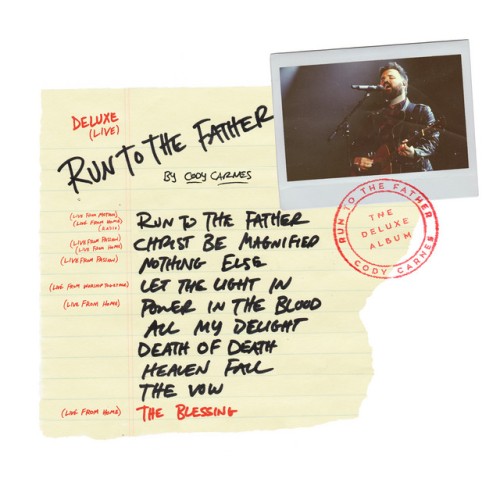 DELUXE
(LIVE)
RUN TO THE FATHER
BY CODY CARNES
(LIVE FROM PASSION)
(LIVE FROM HOME)
(RADIO)
RUN TO THE FATHER
(LIVE FROM PASSION)
(LIVE FROM HOME)
CHRIST BE MAGNIFIED
(LIVE FROM PASSION)
NOTHING ELSE
(LIVE FROM WORSHIP TOGETHER)
LET THE LIGHT IN
(LIVE FROM HOME)
POWER IN THE BLOOD
ALL MY DELIGHT
DEATH OF DEATH
HEAVEN FALL
THE VOW
(LIVE FROM HOME)
THE BLESSING
RUN TO THE FATHER
THE
DELUXE
ALBUM
CODY CARNES